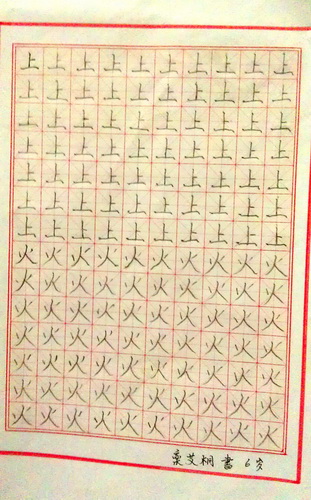 上上上上上上上上上上
上上上上上上上上上上
上上上上上上上上上上
上上上上上上上上上上
上上上上上上上上上上
上上上上上上上上上上
上上上上上上上上上上
火火火火火火火火火火
火火火火火火火火火火
火火火火火火火火火火
火火火火火火火火火火
火火火火火火火火火火
火火火火火火火火火火
火火火火火火火火火火
栗艾桐 書 6岁